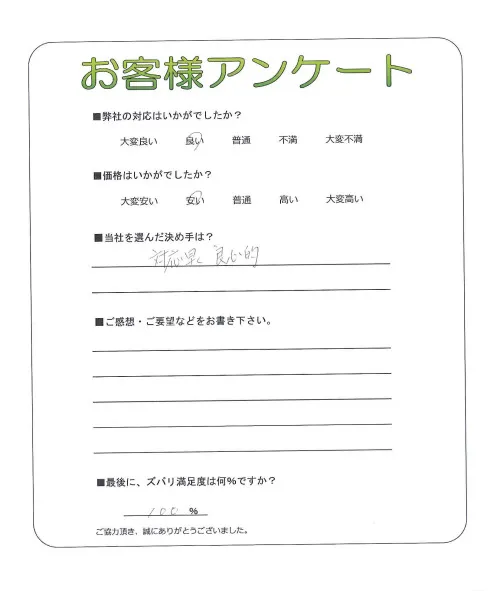 お客様アンケート
■弊社の対応はいかがでしたか？
大変良い 良い 普通 不満 大変不満
■価格はいかがでしたか？
大変安い 安い 普通 高い 大変高い
■当社を選んだ決め手は？
対応早く 良心的
■ご感想・ご要望などをお書き下さい。
■最後に、ズバリ満足度は何%ですか？
100 %
ご協力頂き、誠にありがとうございました。